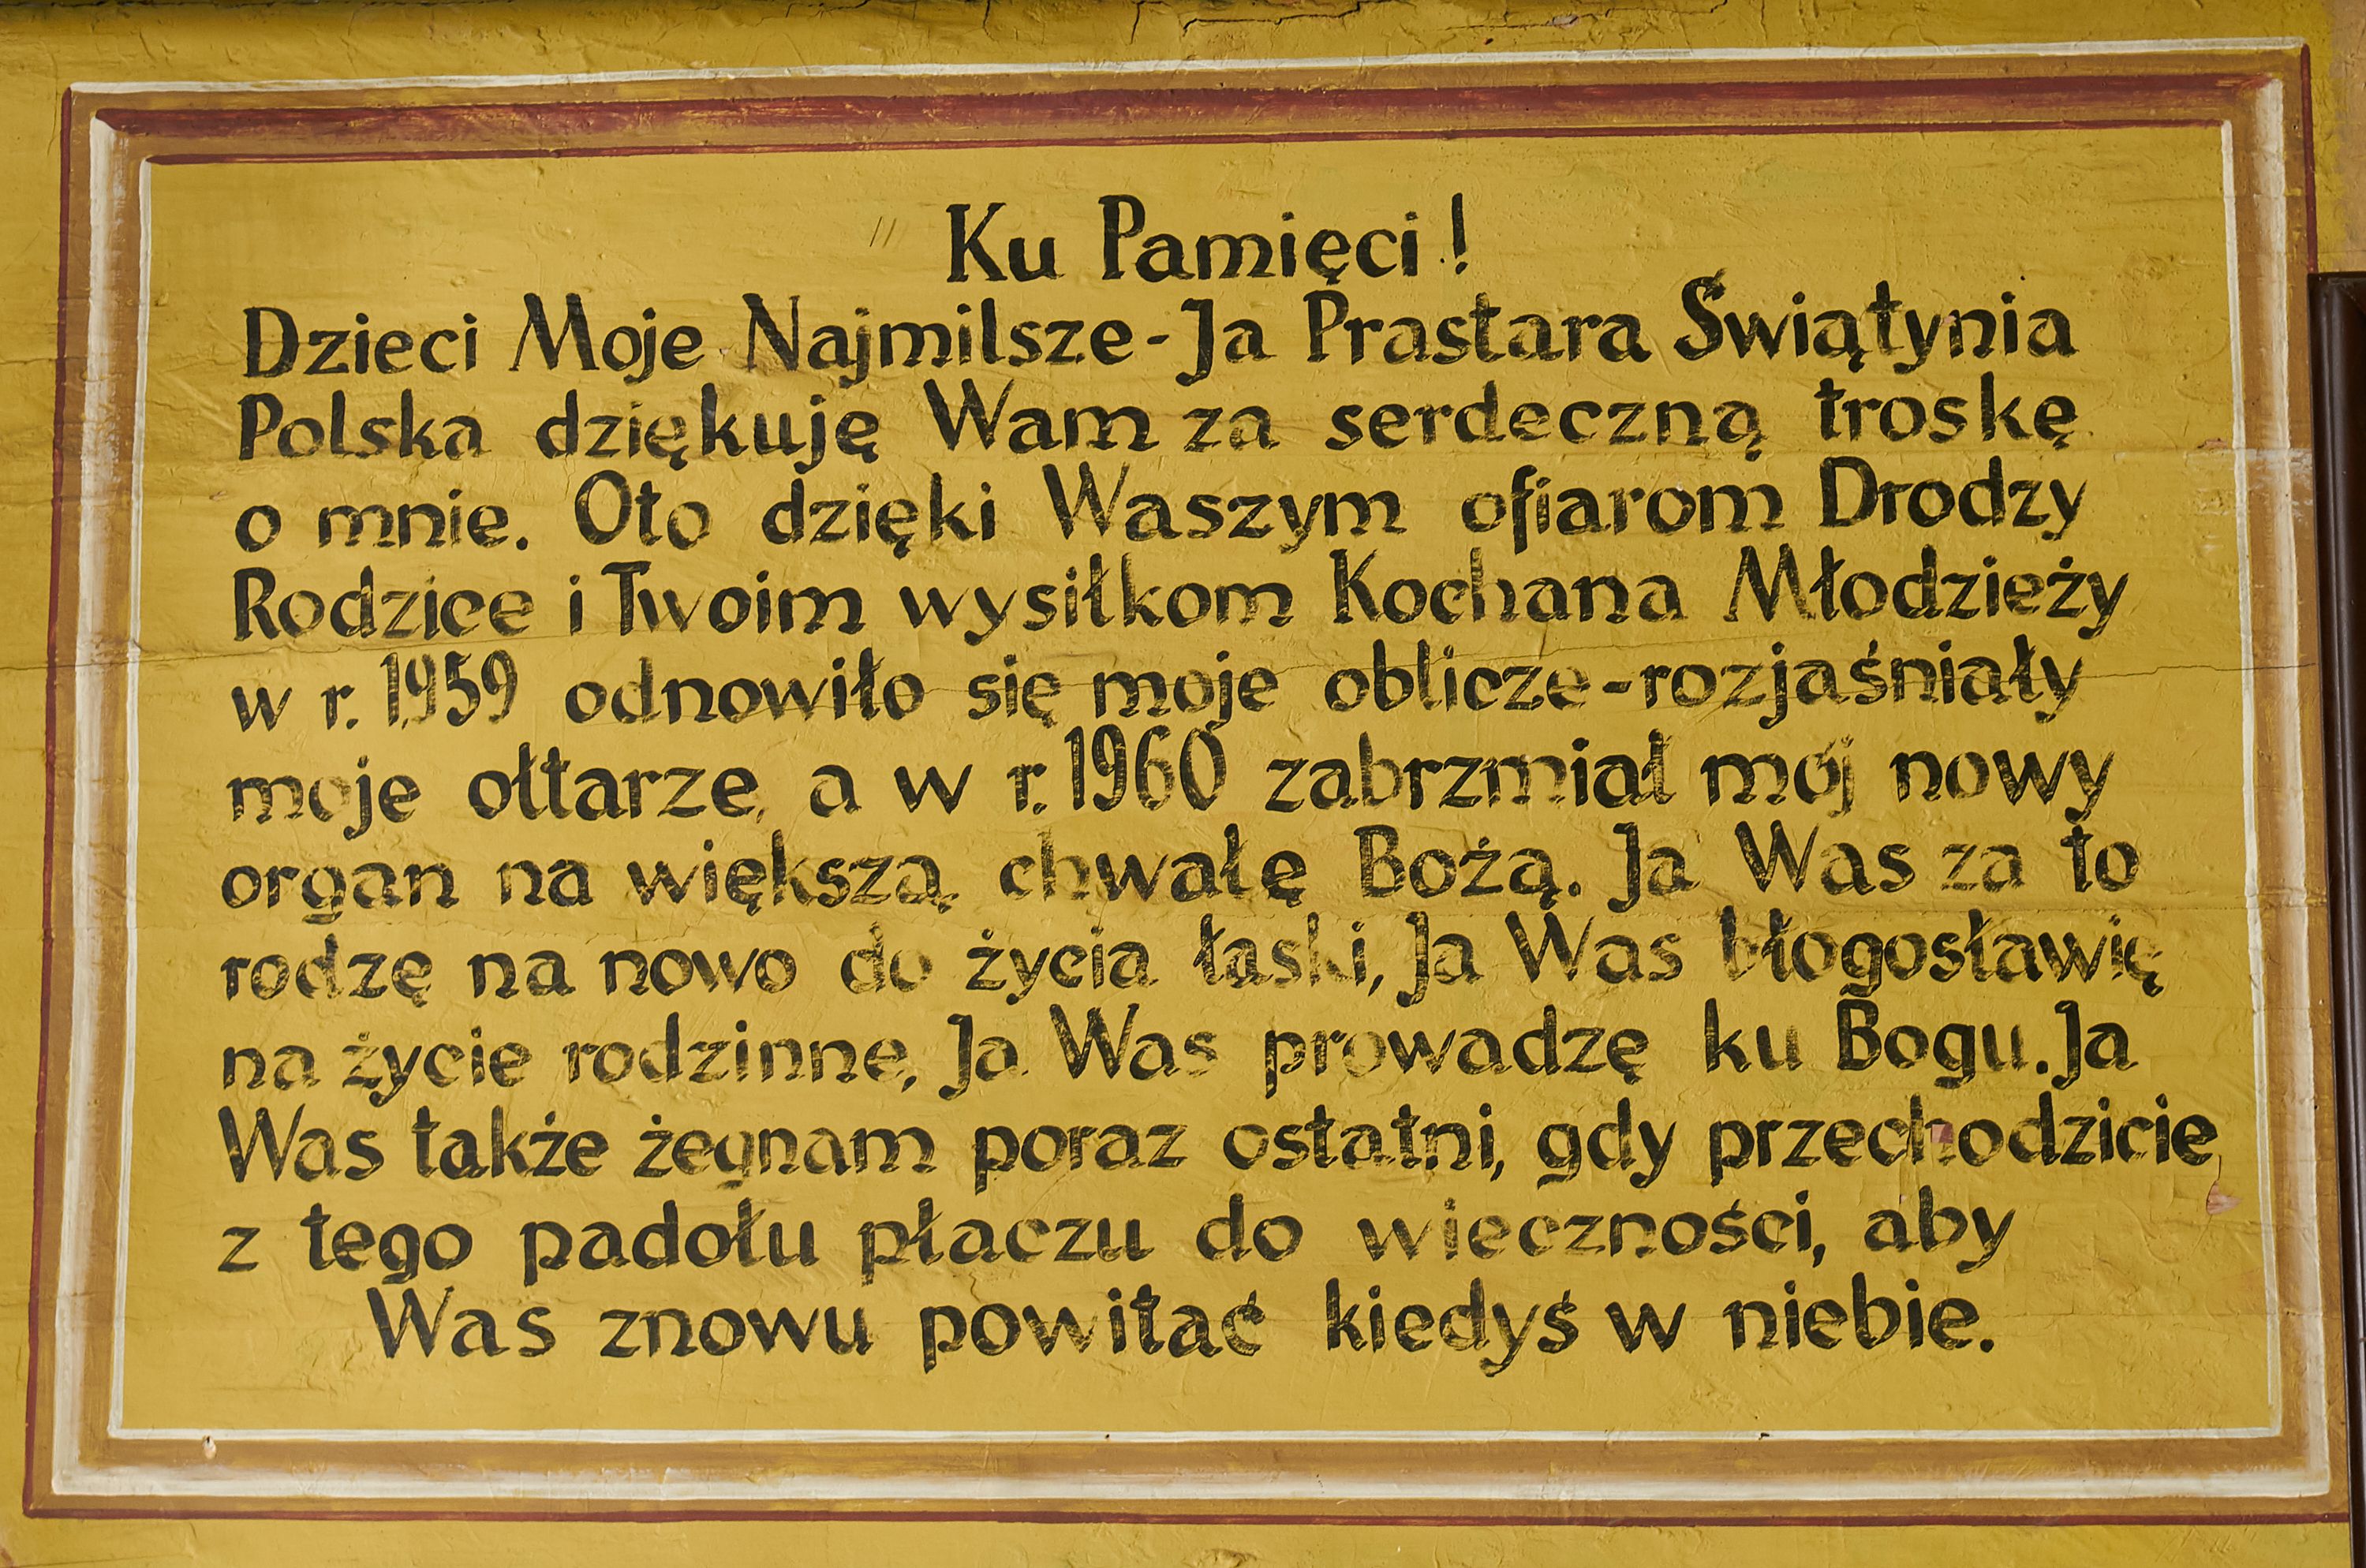 Ku Pamięci!
Dzieci Moje Najmilsze-Ja Prastara Świątynia
Polska dziękuję Wam za serdeczną troskę
o mnie. Oto dzięki Waszym ofiarom Drodzy
Rodzice i Twoim wysiłkom Kochana Młodzieży
w r. 1959 odnowiło się moje oblicze-rozjaśniały
moje ołtarze, a w r. 1960 zabrzmiał mój nowy
organ na większą chwałę Bożą. Ja Was za to
rodzę na nowo do życia łaski, Ja Was błogosławię
na życie rodzinne, Ja Was prowadzę ku Bogu. Ja
Was także żegnam poraz ostatni, gdy przechodzicie
z tego padołu płaczu do wieczności, aby
Was znowu powitać kiedyś w niebie.